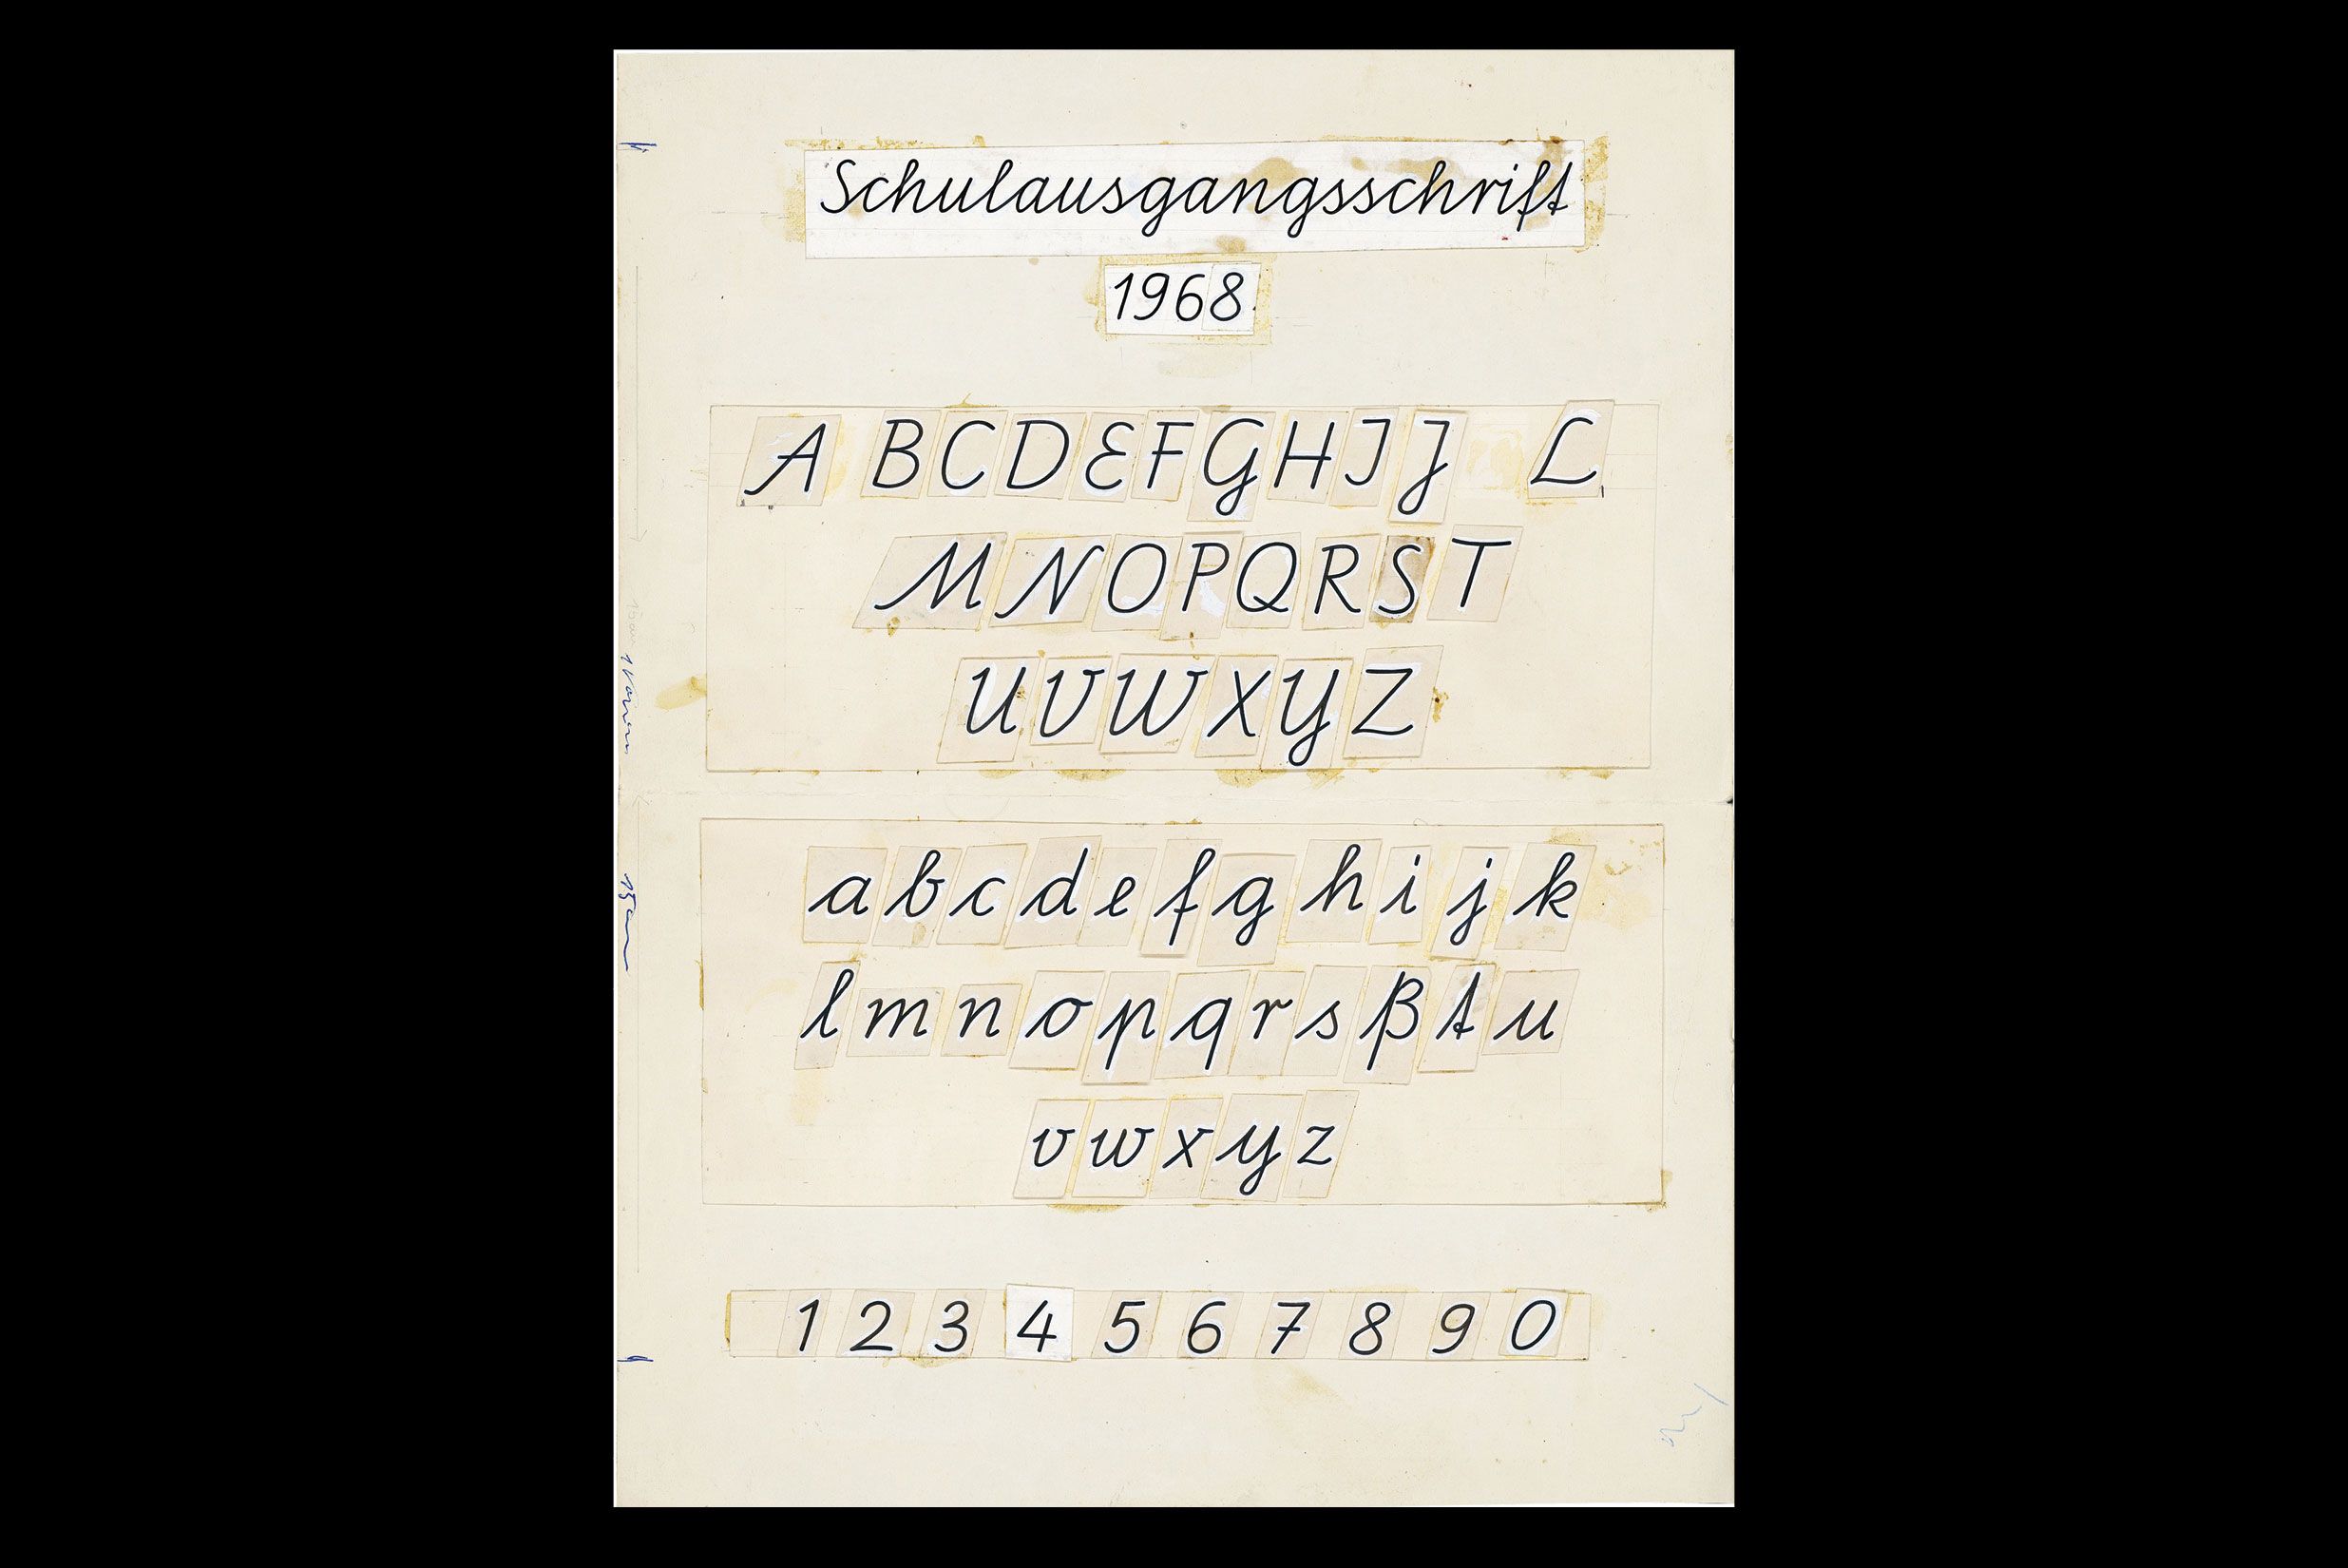 Schulausgangsschrift
1968
A B C D E F G H I J L
M N O P Q R S T
U V W X Y Z
a b c d e f g h i j k
l m n o p q r s ß t u
v w x y z
1 2 3 4 5 6 7 8 9 0